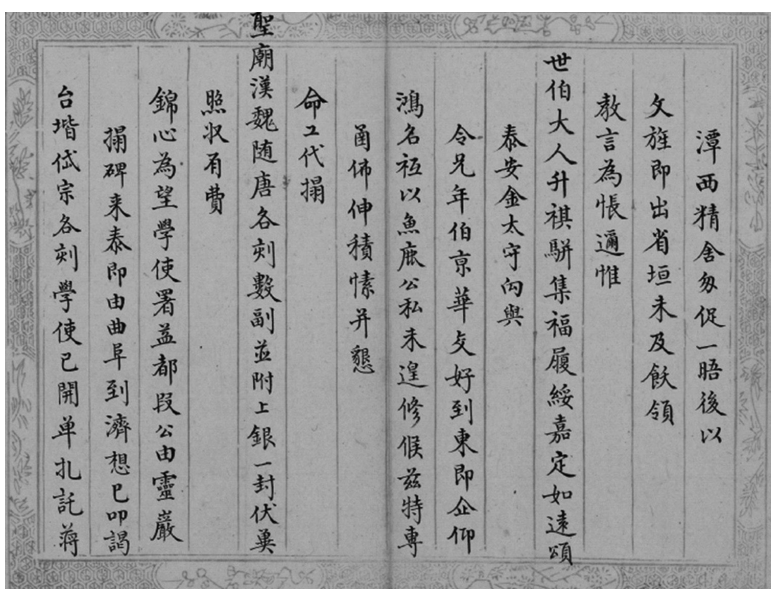 潭西精舍匆促一晤後以
文旌即出省垣未及飫領
教言為悵邇惟
世伯大人升祺駢集福履綏嘉定如遠頌
泰安金太守向與
令兄年伯京華交好到東即企仰
鴻名祇以魚鹿公私未遑修候茲特專
函佈伸積愫并懇
命工代搨
聖廟漢魏随唐各刻數副並附上銀一封伏兾
照收有費
錦心為望學使署益都段公由靈巖
搨碑来泰即由曲阜到濟想已叩謁
台堦岱宗各刻學使已開单扎託蔣